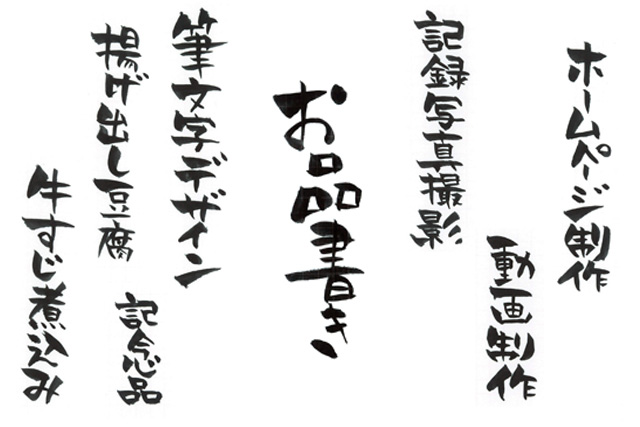 ホームページ制作
動画制作
記録写真撮影
お品書き
筆文字デザイン
揚げ出し豆腐
記念品
牛すじ煮込み